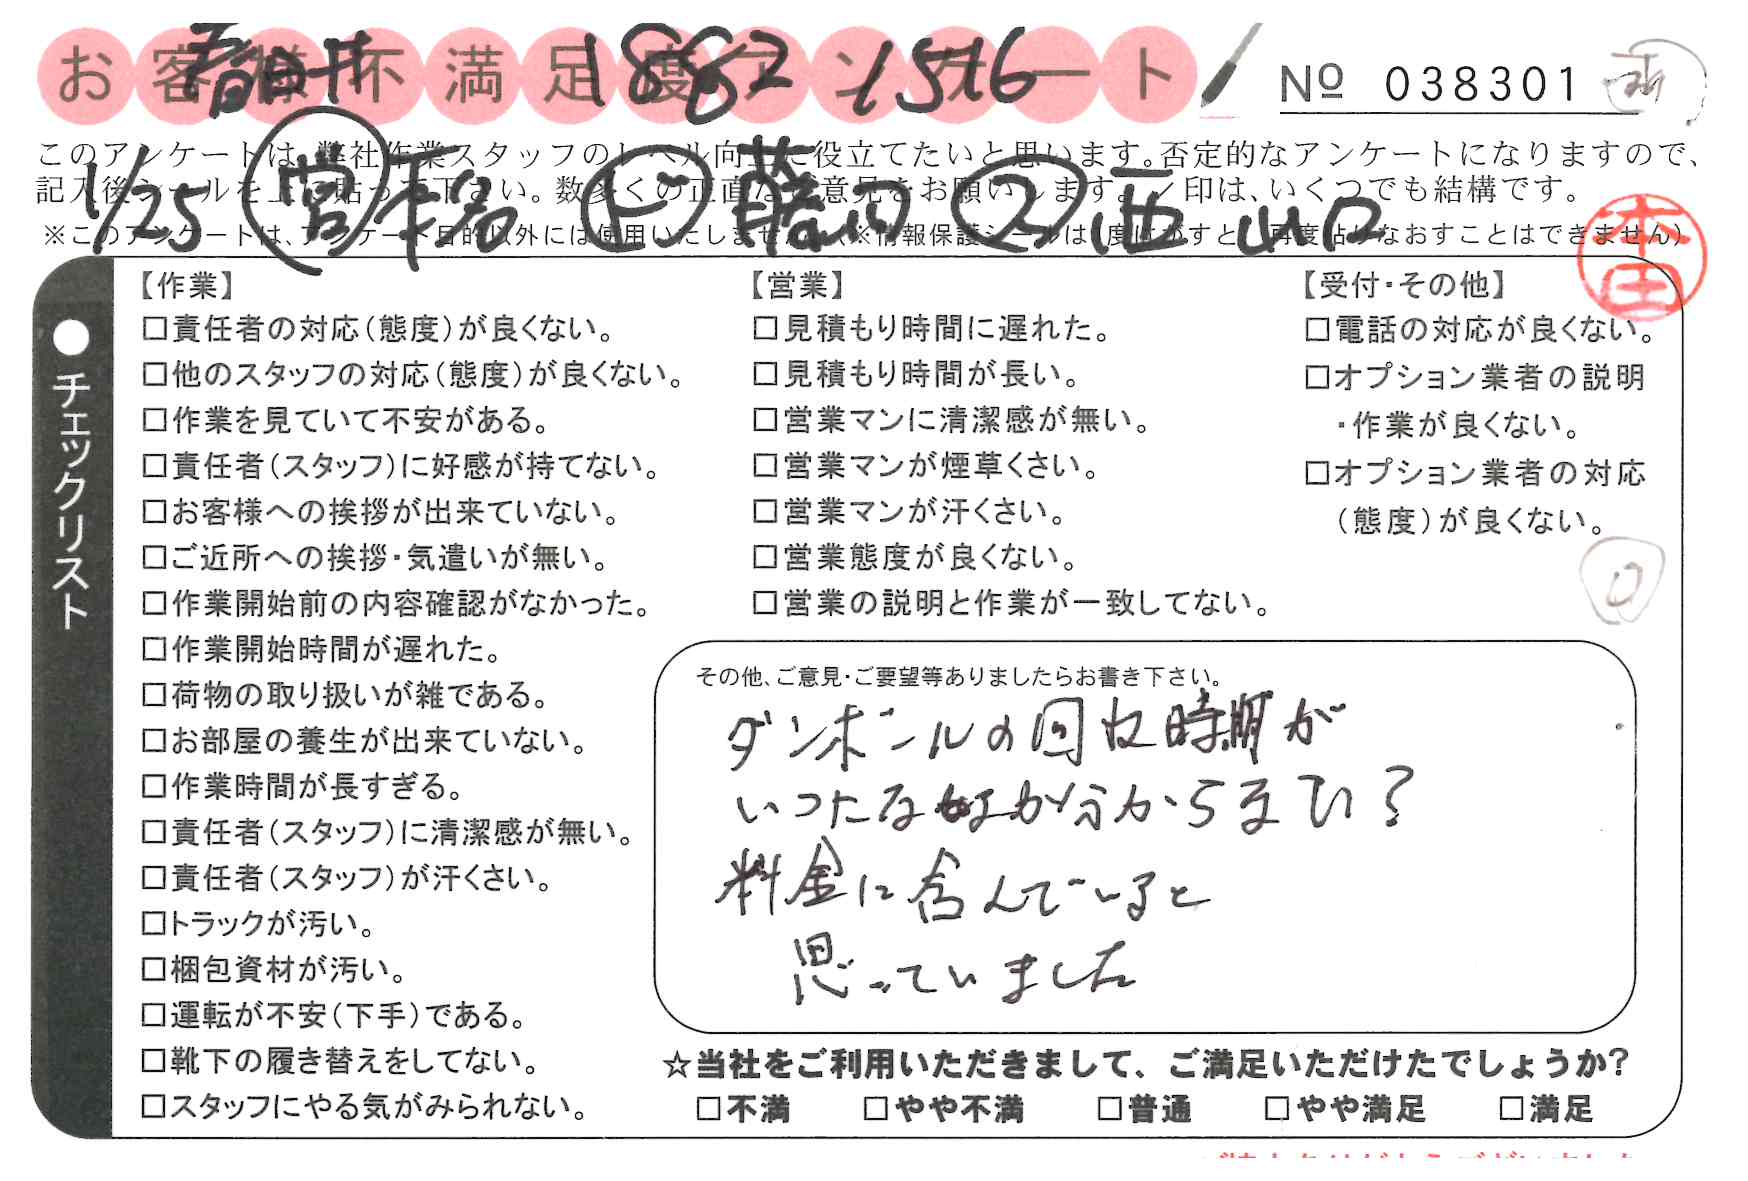 お客様不満足度アンケート
春日井 1882 1516
№ 038301
このアンケートは、弊社作業スタッフのレベル向上に役立てたいと思います。否定的なアンケートになりますので、
記入後シールを上に貼って下さい。数多くの正直なご意見をお願いします。／印は、いくつでも結構です。
1/25 営 ピ 2 西山
※このアンケートは、アンケート目的以外には使用いたしません。(※情報保護シールは1度はがすと、再度貼りなおすことはできません)
本田
●チェックリスト
【作業】
□責任者の対応(態度)が良くない。
□他のスタッフの対応(態度)が良くない。
□作業を見ていて不安がある。
□責任者(スタッフ)に好感が持てない。
□お客様への挨拶が出来ていない。
□ご近所への挨拶・気遣いが無い。
□作業開始前の内容確認がなかった。
□作業開始時間が遅れた。
□荷物の取り扱いが雑である。
□お部屋の養生が出来ていない。
□作業時間が長すぎる。
□責任者(スタッフ)に清潔感が無い。
□責任者(スタッフ)が汗くさい。
□トラックが汚い。
□梱包資材が汚い。
□運転が不安(下手)である。
□靴下の履き替えをしてない。
□スタッフにやる気がみられない。
【営業】
□見積もり時間に遅れた。
□見積もり時間が長い。
□営業マンに清潔感が無い。
□営業マンが煙草くさい。
□営業マンが汗くさい。
□営業態度が良くない。
□営業の説明と作業が一致してない。
【受付・その他】
□電話の対応が良くない。
□オプション業者の説明
・作業が良くない。
□オプション業者の対応
(態度)が良くない。
0
その他、ご意見・ご要望等ありましたらお書き下さい。
ダンボールの回収時期が
いつになるか分からない?
料金に含んでいると
思っていました
☆当社をご利用いただきまして、ご満足いただけたでしょうか?
□不満 □やや不満 □普通 □やや満足 □満足